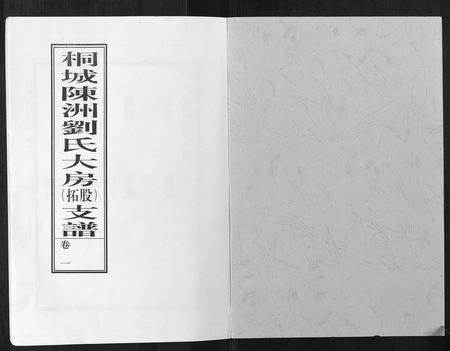 桐城陳洲劉氏大房(拓股)支譜
卷一